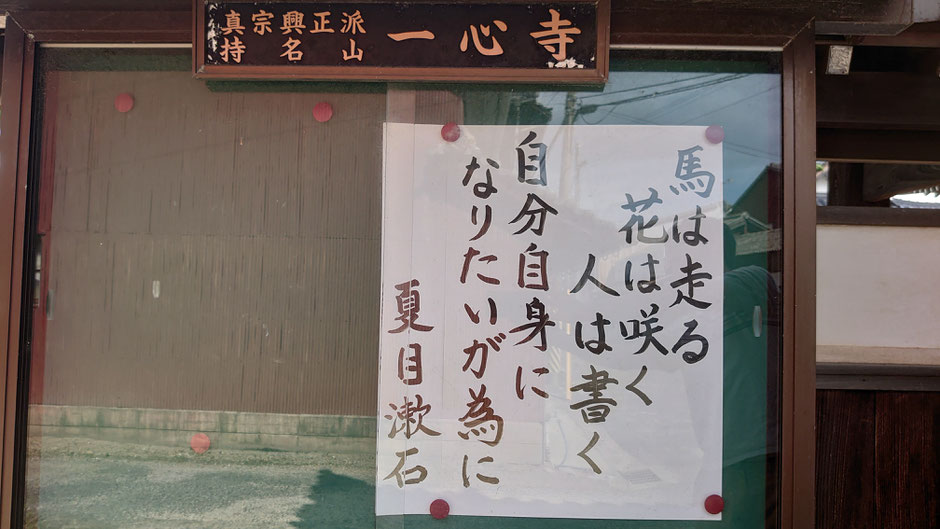 真宗興正派
持名山
一心寺
馬は走る
花は咲く
人は書く
自分自身に
なりたいが為に
夏目漱石